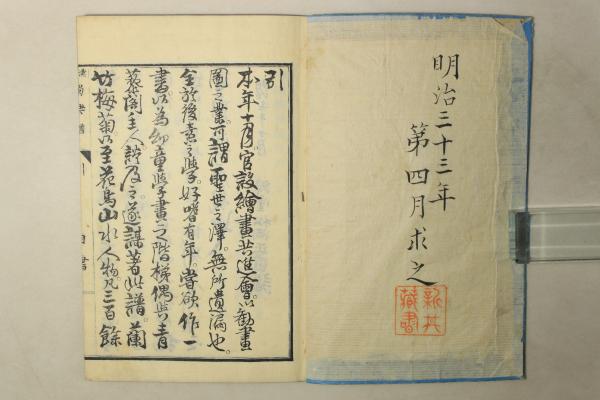 明治三十三年
第四月求之
藏書
引
本年十月官設繪畫共進會以勸畫
圖之業可謂聖世之澤無所遺漏也
余於後素之學好嗜有年嘗欲作一
書以為幼童學畫之階梯偶與青
裳閣主人談及之遂謀著此譜蘭
竹梅菊以至花鳥山水人物凡三百餘